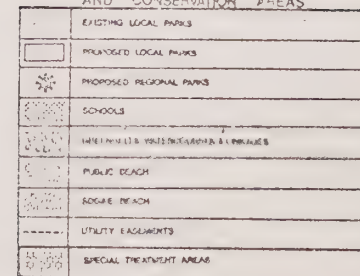 AND CONSERVATION AREAS
EXISTING LOCAL PARKS
PROPOSED LOCAL PARKS
PROPOSED REGIONAL PARKS
SCHOOLS
& LINKAGES
PUBLIC BEACH
BEACH
UTILITY EASEMENTS
SPECIAL TREATMENT AREAS